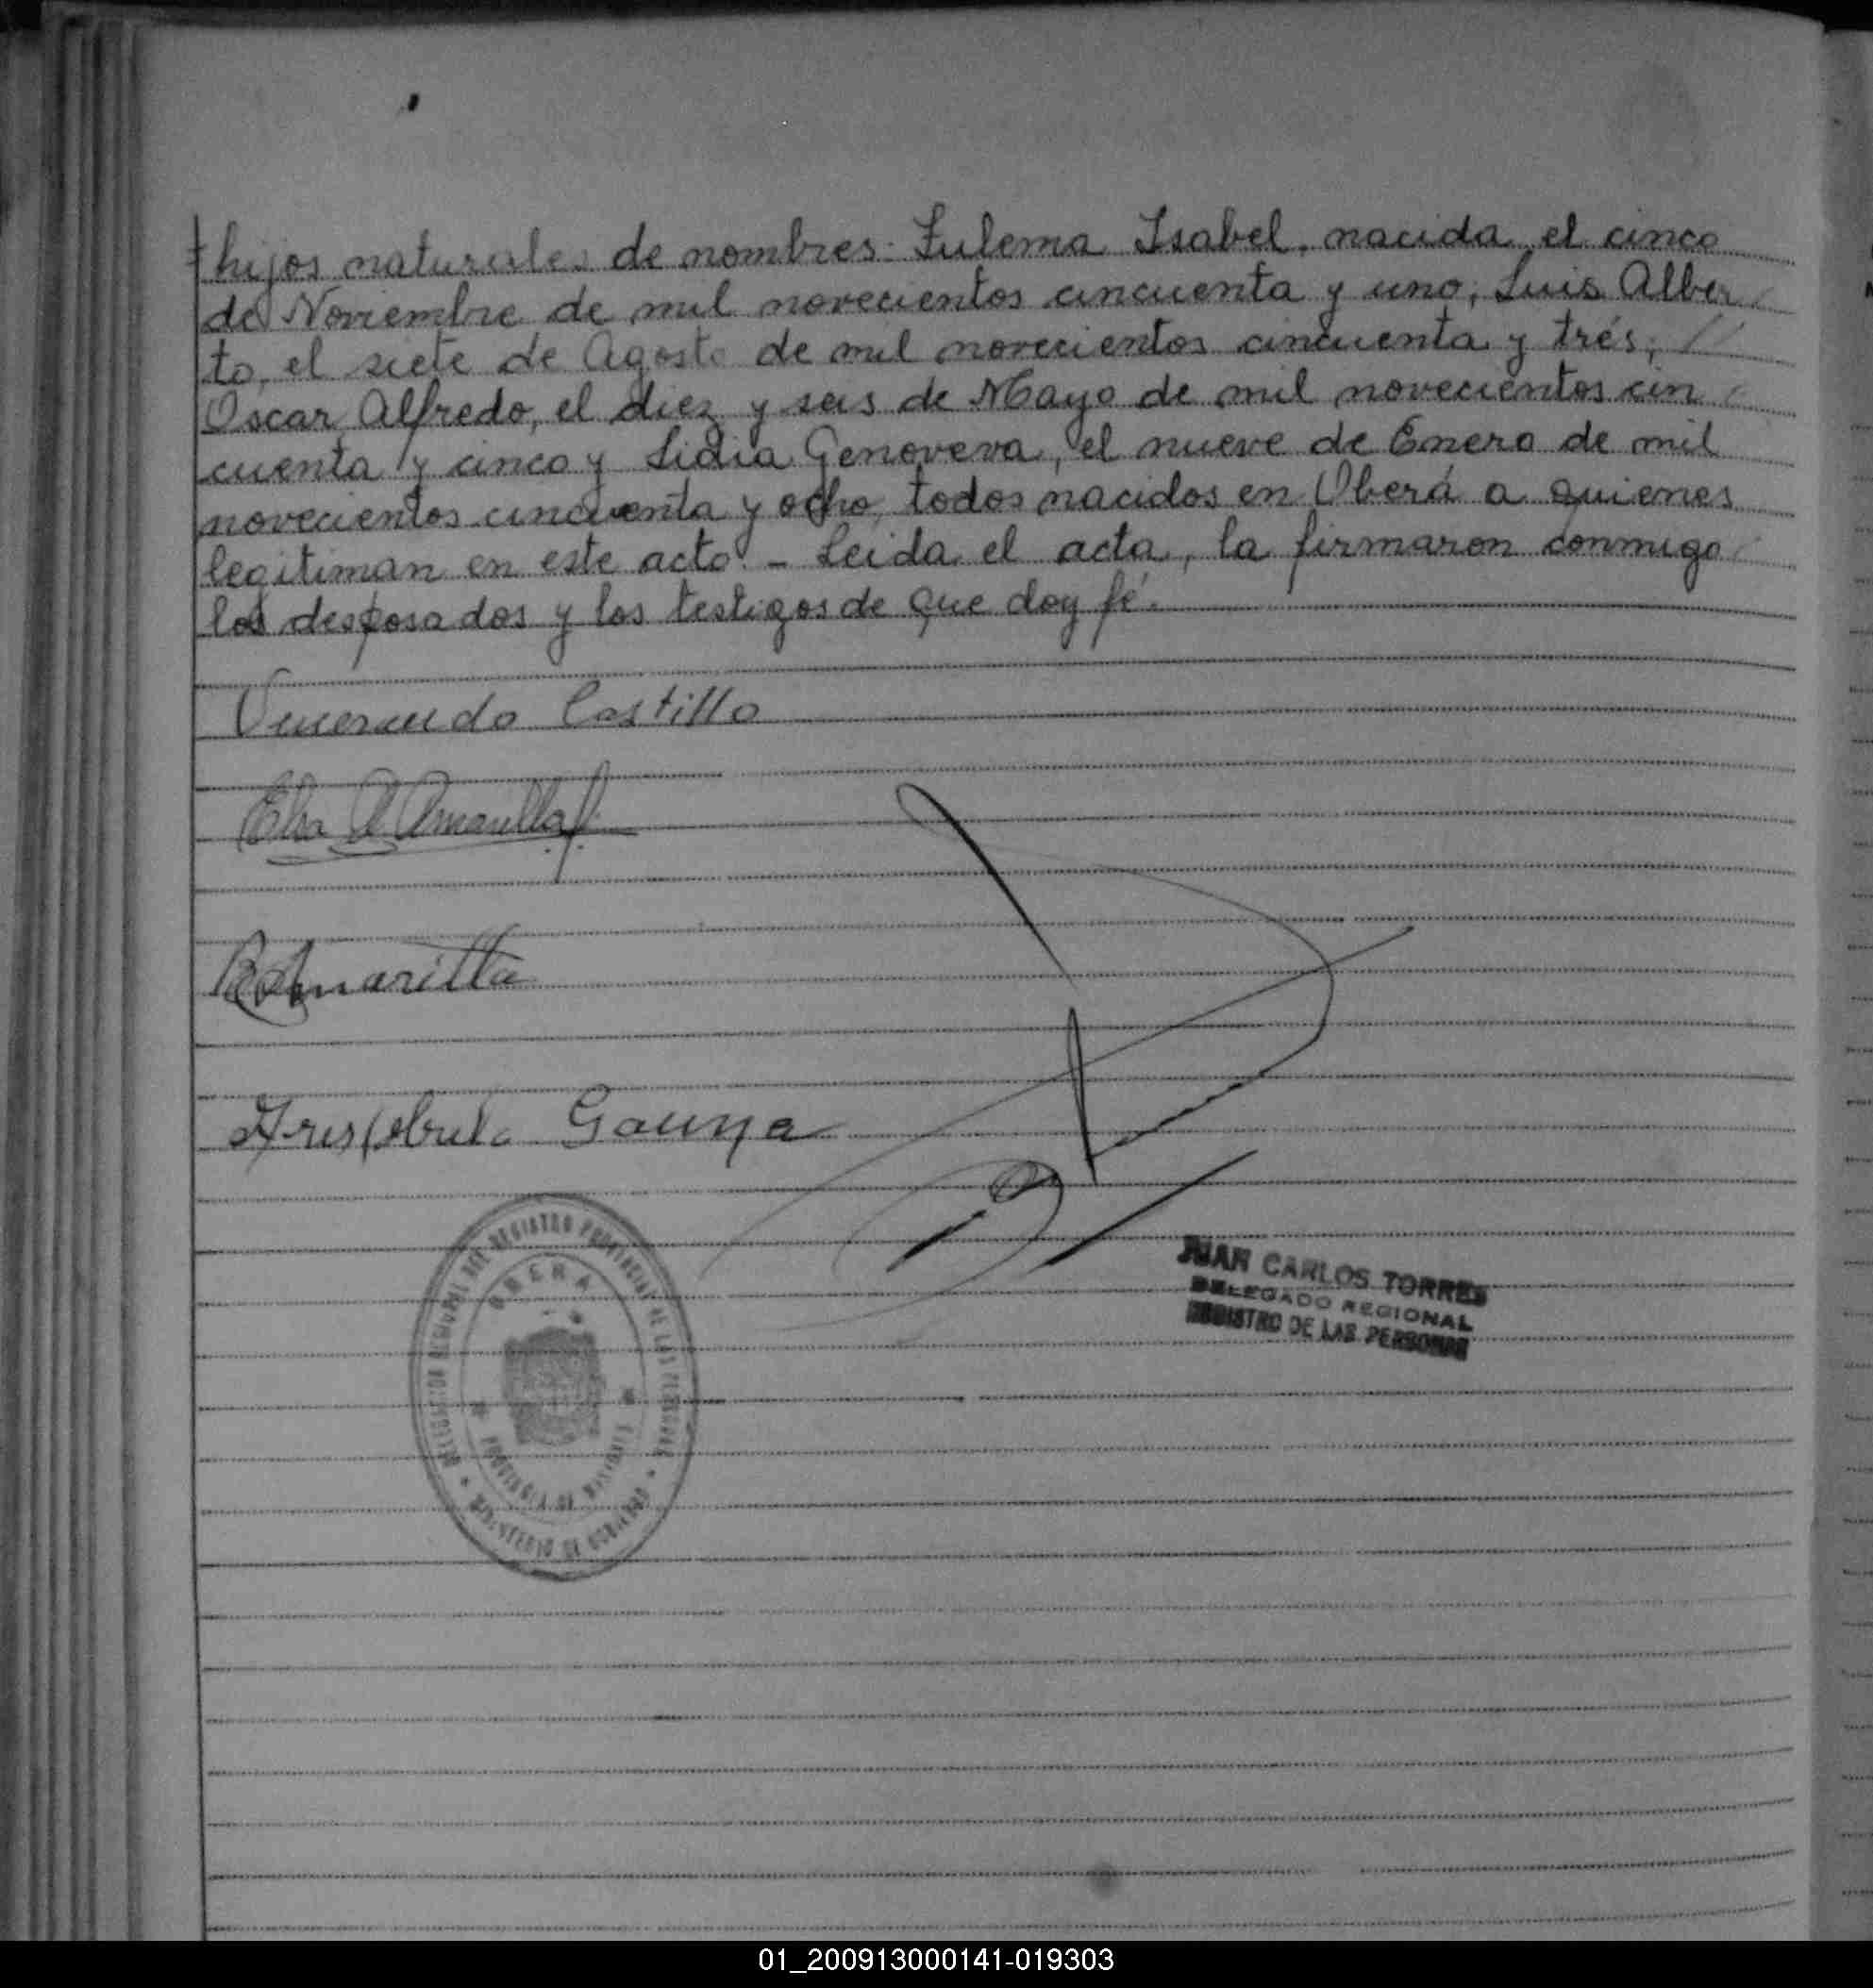 hijos naturales de nombres: Zulema Isabel, nacida el cinco
de Noviembre de mil novecientos cincuenta y uno; Luis Alber
to, el siete de Agosto de mil novecientos cincuenta y trés; //
Oscar Alfredo, el diez y seis de Mayo de mil novecientos cin
cuenta y cinco y Lidia Genoveva, el nueve de Enero de mil
novecientos cincuenta y ocho, todos nacidos en Oberá a quienes
legitiman en este acto. - Leida el acta, la firmaron conmigo
los desposados y los testigos de que doy fé.
Venerando Castillo
Elsa Amarilla
Amarilla
Gauna
DELEGACION REGIONAL DEL REGISTRO PROVINCIAL DE LAS PERSONAS
OBERA
PROVINCIA DE MISIONES
MINISTERIO DE GOBIERNO
JUAN CARLOS TORRES
DELEGADO REGIONAL
REGISTRO DE LAS PERSONAS
01_200913000141-019303